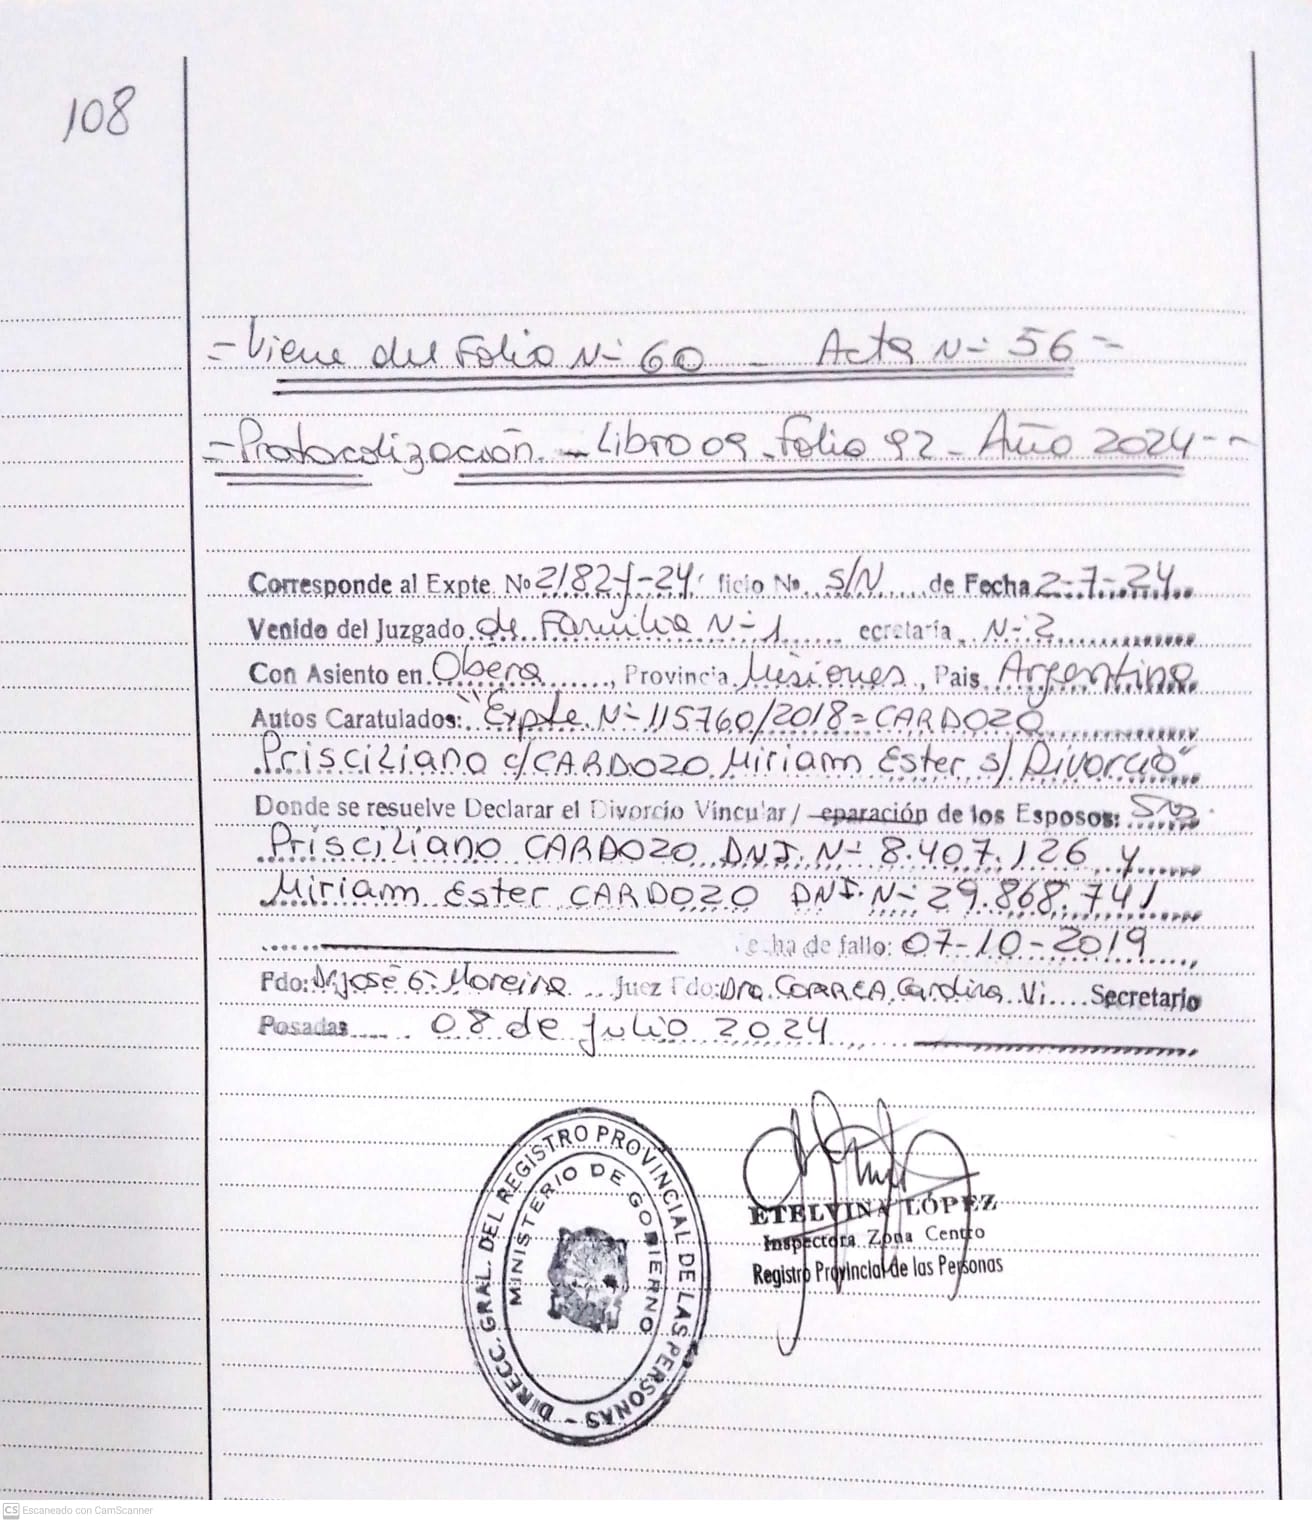 108
- Viene del Folio Nº 60 - Acta Nº 56 -
- Protocolización - Libro 09 - Folio 92 - Año 2024 - -
Corresponde al Expte. Nº 2182-J-24 ficio Nº S/N de Fecha 2-7-24
Venido del Juzgado de Familia Nº 1 ecretaría Nº 2
Con Asiento en Obera, Provincia Misiones, Pais Argentina
Autos Caratulados: "Expte Nº 115760/2018 = CARDOZO
Prisciliano c/ CARDOZO Miriam Ester s/ Divorcio"
Donde se resuelve Declarar el Divorcio Vincular / eparación de los Esposos: Sres.
Prisciliano CARDOZO DNI. Nº 8.407.126 y
Miriam Ester CARDOZO DNI. Nº 29.868.741
Fecha de fallo: 07-10-2019
Fdo: Dr José G. Moreira Juez Fdo: Dra. CORREA Carolina Vi. Secretario
Posadas 08 de julio 2024
DIRECC. GRAL. DEL REGISTRO PROVINCIAL DE LAS PERSONAS -
MINISTERIO DE GOBIERNO
ETELVINA LÓPEZ
Inspectora Zona Centro
Registro Provincial de las Personas
CS Escaneado con CamScanner